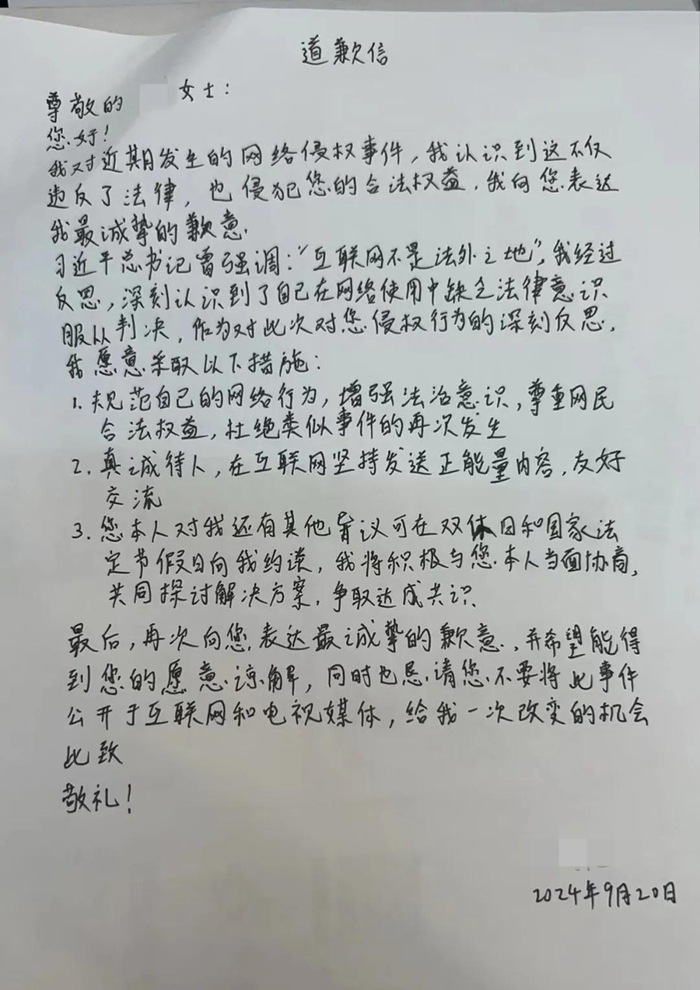 道歉信
尊敬的 女士：
您好！
我对近期发生的网络侵权事件，我认识到这不仅
违反了法律，也侵犯您的合法权益，我向您表达
我最诚挚的歉意．
习近平总书记曾强调：“互联网不是法外之地”，我经过
反思，深刻认识到了自己在网络使用中缺乏法律意识
服从判决，作为对此次对您侵权行为的深刻反思，
我愿意采取以下措施：
1．规范自己的网络行为，增强法治意识，尊重网民
合法权益，杜绝类似事件的再次发生
2．真诚待人，在互联网坚持发送正能量内容，友好
交流
3．您本人对我还有其他异议可在双休日和国家法
定节假日向我约谈，我将积极与您本人当面协商，
共同探讨解决方案，争取达成共识．
最后，再次向您表达最诚挚的歉意．，并希望能得
到您的愿意谅解，同时也恳请您不要将此事件
公开于互联网和电视媒体，给我一次改变的机会
此致
敬礼！
2024年9月20日